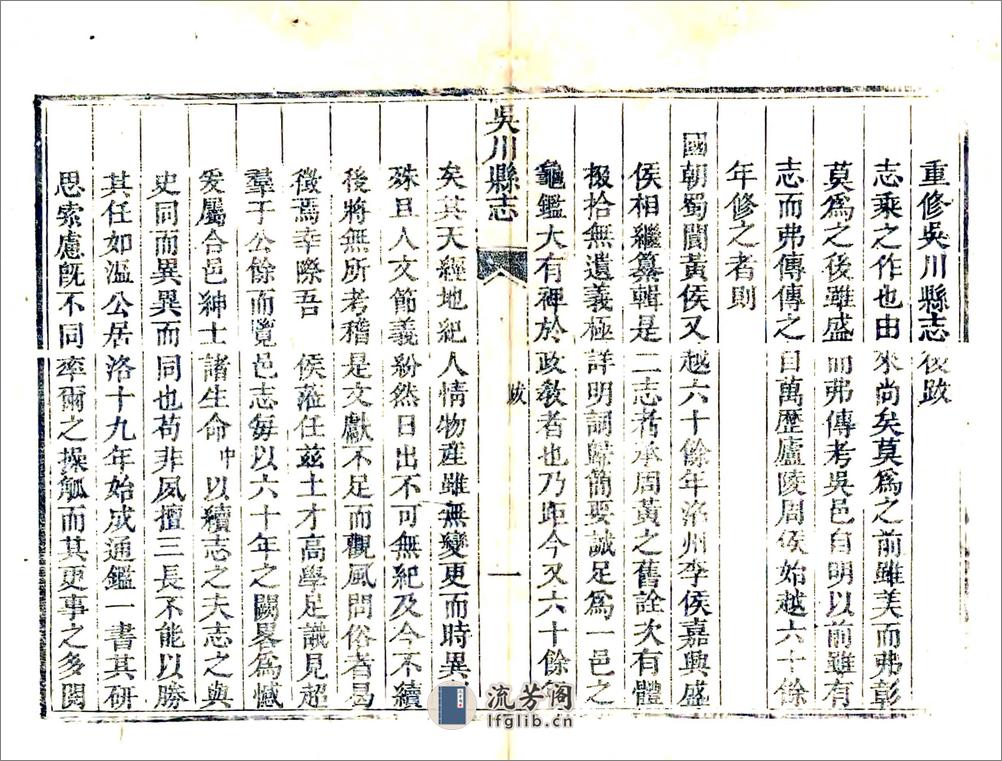 重修吳川縣志後跋
志乘之作也由來尚矣莫爲之前雖美而弗彰
莫爲之後雖盛而弗傳考吳邑自明以前雖有
志而弗傳傳之自萬歷廬陵周侯始越六十餘
年修之者則
國朝蜀閬黃侯又越六十餘年洺州李侯嘉興盛
侯相繼纂輯是二志者本周黃之舊詮次有體
掇拾無遺義極詳明詞歸簡要誠足爲一邑之
龜鑑大有裨於政敎者也乃距今又六十餘年
吳川縣志
跋
一
矣其天經地紀人情物産雖無變更而時異
殊且人文節義紛然日出不可無紀及今不續
後將無所考稽是文獻不足而觀風問俗者曷
徵焉幸際吾 侯蒞任兹土才高學足識見超
羣于公餘而覽邑志每以六十年之闕畧爲憾
爰屬合邑紳士諸生命中以續志之夫志之與
史同而異異而同也苟非夙擅三長不能以勝
其任如溫公居洛十九年始成通鑑一書其研
思索慮旣不同率爾之操觚而其更事之多閱
流芳阁
lfglib.cn